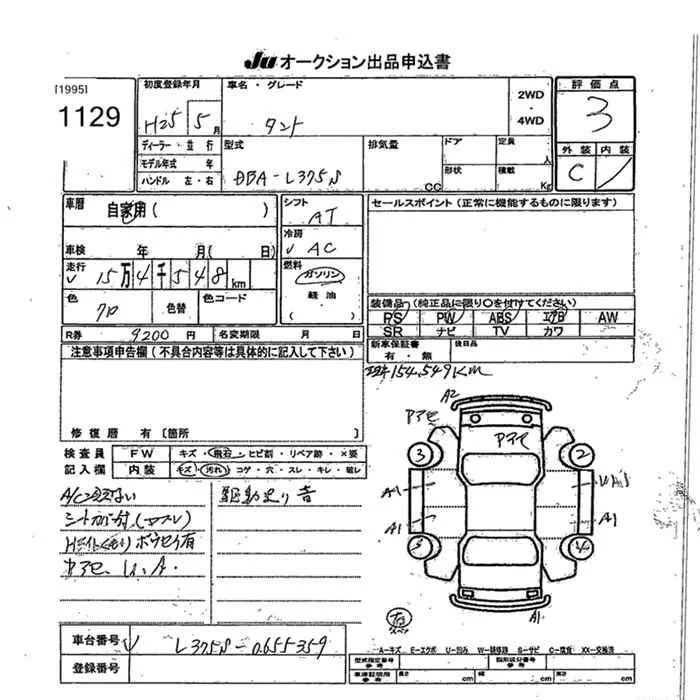 Ju オークション出品申込書
[1995]
1129
初度登録年月
H25 5 月
車名・グレード
タント
2WD
・
4WD
評価点
3
外装 内装
C
ディーラー・並行
モデル年式 年
ハンドル 左・右
型式
DBA-L375S
排気量
CC
ドア
形状
定員
人
積載
Kg
車歴
自家用( )
車検 年 月( 日)
走行
15万4千548km
色
クロ
色替
色コード
シフト
AT
冷房
AC
燃料
ガソリン
軽油
( )
セールスポイント (正常に機能するものに限ります)
装備品 (純正品に限り○を付けてください)
PS PW ABS エアB AW
SR ナビ TV カワ
新車保証書
有・無
後日品
R券 9200円
名変期限 月 日
注意事項申告欄 (不具合内容等は具体的に記入して下さい)
修復歴 有 [箇所
154,549Km
検査員
記入欄
FW
キズ・飛石・ヒビ割・リペア跡・×要
内装
キズ・汚れ・コゲ・穴・スレ・キレ・破レ
駆動走り音
A2
A1
A1
A1
A1
3
2
車台番号
L375S-0655359
登録番号
A-キズ E-エクボ U-凹み W-補修跡 S-サビ C-腐食 XX-交換済
型式指定番号
参考
類別区分番号
参考
長さ cm
幅 cm
高さ cm